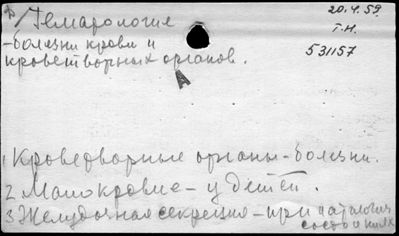 Ф/Гематология
20.4.59.
-болезни крови и
Т.Н.
кроветворных органов.
531157
А
1. Кроветворные органы-болезни.
2. Малокровие - у детей.
3. Желудочная секреция - при патология
состояниях